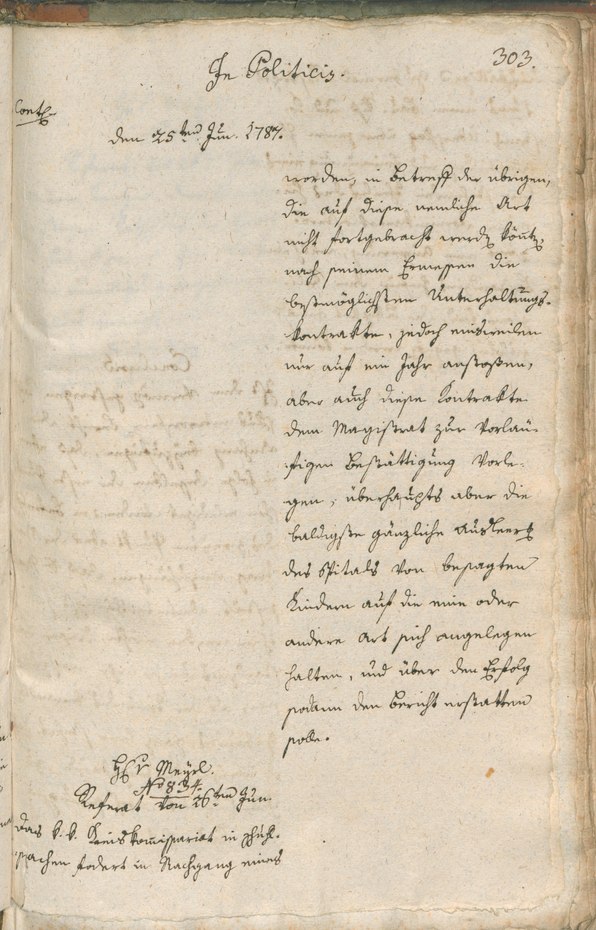 303.
In Politicis.
Cont.
den 25ten Jun. 1787.
worden, in Betreff der übrigen,
die auf diese nemliche Art
nicht fortgebracht werden könten,
nach seinem Ermessen die
bestmöglichsten Unterhaltungs-
kontrakte, jedoch einsweilen
nur auf ein Jahr anstoßen,
aber auch diese Kontrakte
dem Magistrat zur vorläu-
figen Bestättigung vorle-
gen, überhaupts aber die
baldigste gänzliche Ausleerg
des Spitals von besagten
Kindern auf die eine oder
andere Art sich angelegen
halten, und über den Erfolg
sodann den Bericht erstatten
solle.
Hr Meyrl.
No 834.
Referat von 26ten Jun.
Das k. k. Kreiskommissariat in
fodert in Nachgang eines